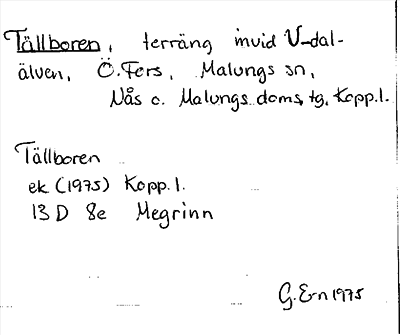 Tällboren, terräng invid V-dal-
älven, Ö. Fors, Malungs sn,
Nås o. Malungs doms. tg, Kopp. l.
Tällboren
ek (1975) Kopp. l.
13 D 8e Megrinn
G. E-n 1975